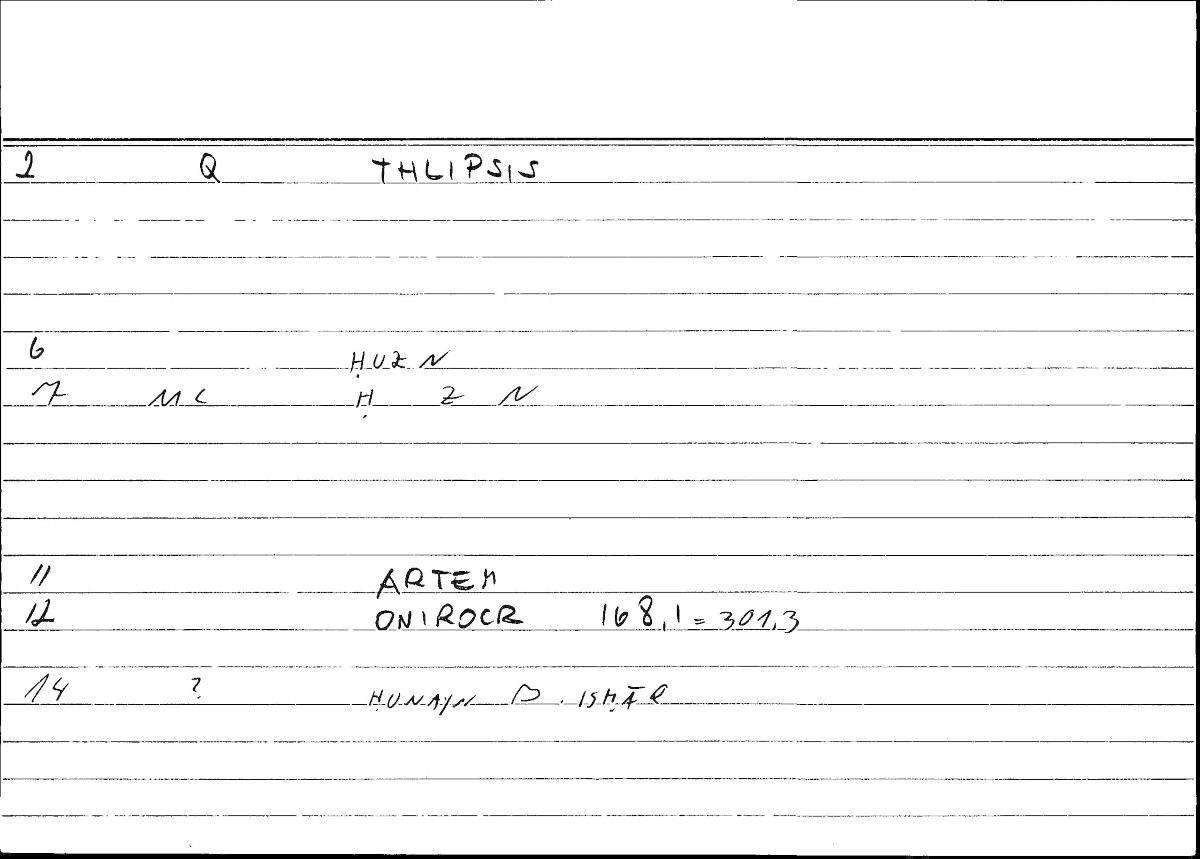 2 Q THLIPSIS
6 ḤUZN
7 MC Ḥ Z N
11 ARTEM
12 ONIROCR 168,1 = 301,3
14 ? ḤUNAYN B. ISḤĀQ